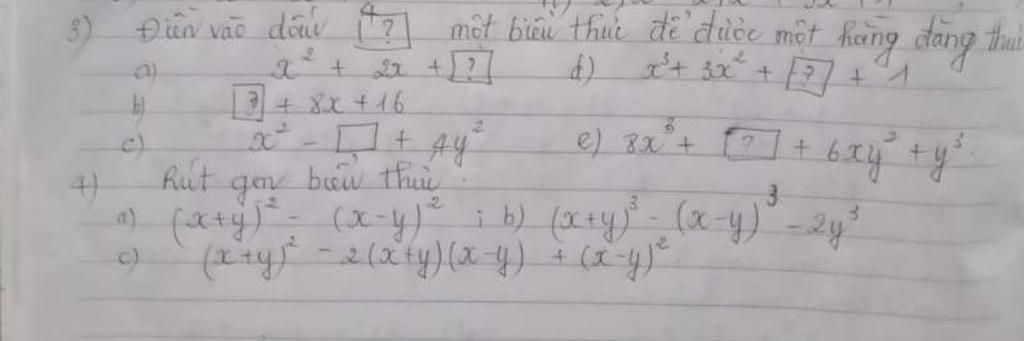 3) Điền vào dấu [?] một biểu thức để được một hằng đẳng thức
a) x² + 2x + [?] d) x³ + 3x² + [?] + 1
b) [?] + 8x + 16
c) x² - [ ] + 4y² e) 8x³ + [?] + 6xy² + y³.
4) Rút gọn biểu thức.
a) (x+y)² - (x-y)² ; b) (x+y)³ - (x-y)³ - 2y³
c) (x+y)² - 2(x+y)(x-y) + (x-y)²